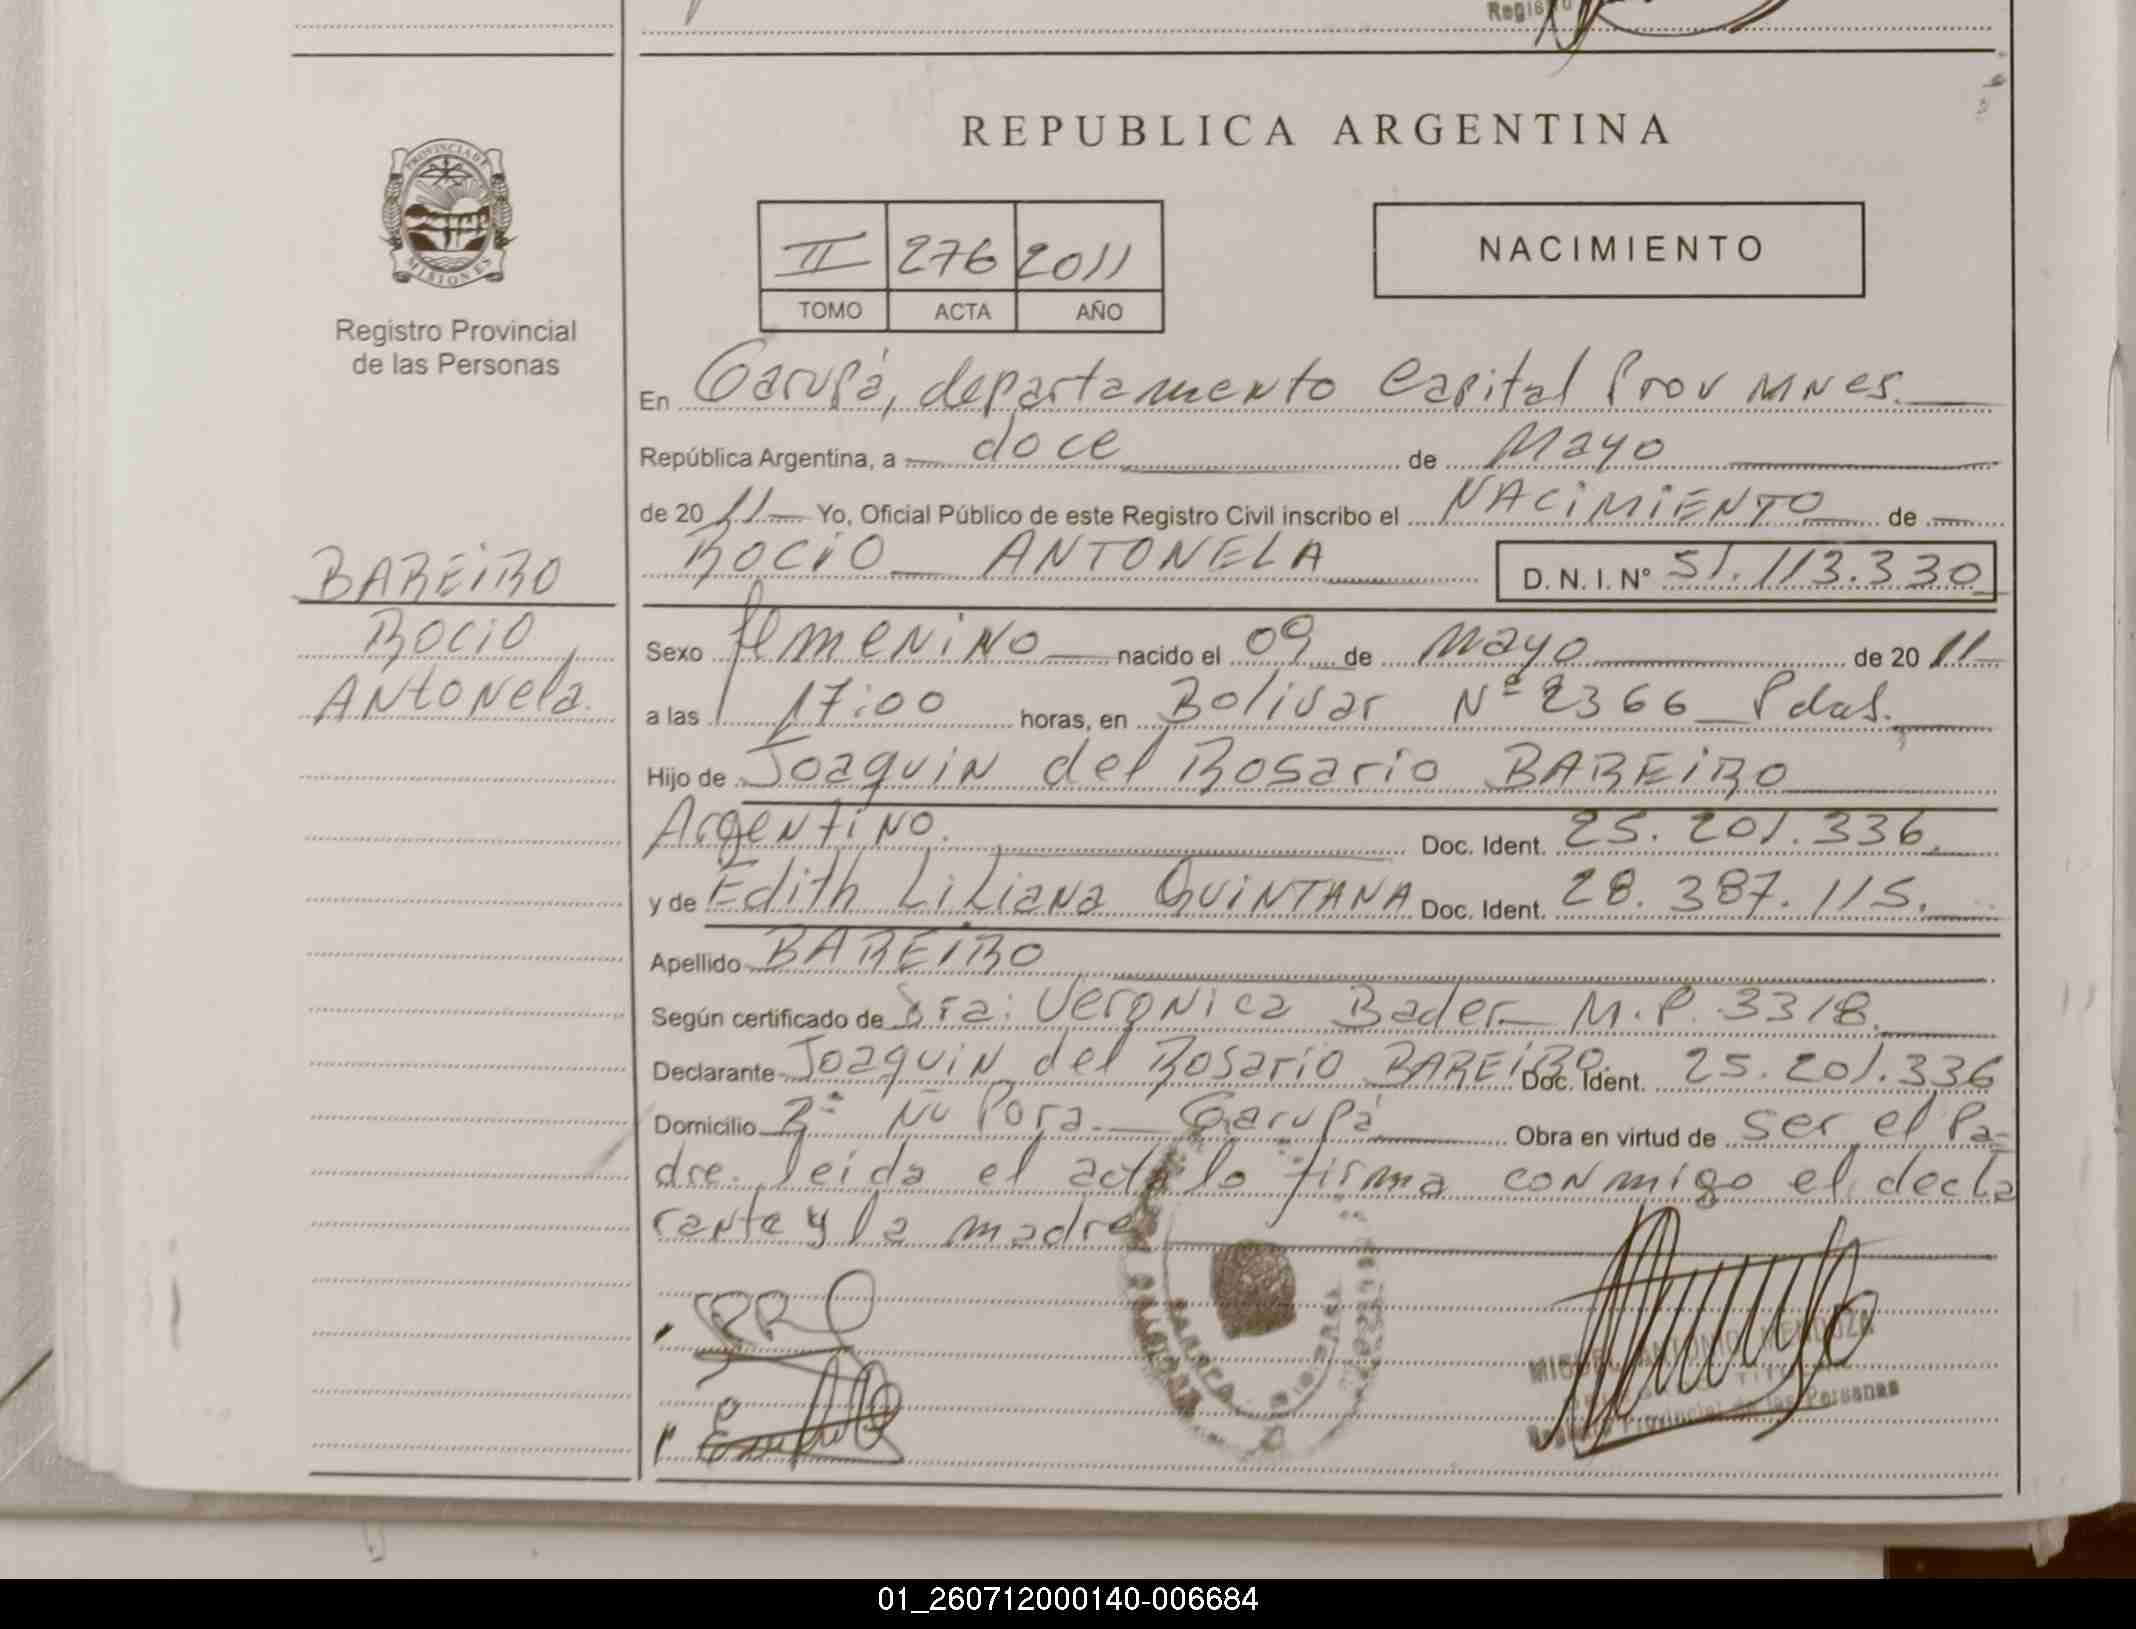 Regis
REPUBLICA ARGENTINA
PROVINCIA DE
MISIONES
Registro Provincial
de las Personas
II 276 2011
TOMO ACTA AÑO
NACIMIENTO
En Garupá, departamento Capital Prov MNes.
República Argentina, a doce de Mayo
de 2011 Yo, Oficial Público de este Registro Civil inscribo el NACIMIENTO de
ROCIO ANTONELA D. N. I. N° 51.113.330
BAREIRO
ROCIO
ANtoNela.
Sexo femenino nacido el 09 de Mayo de 2011
a las 17:00 horas, en Bolivar Nº 2366 Pdas.
Hijo de Joaquin del Rosario BAREIRO
Argentino. Doc. Ident. 25.201.336.
y de Edith Liliana QUINTANA Doc. Ident. 28.387.115.
Apellido BAREIRO
Según certificado de Dra: Veronica Bader M.P. 3318.
Declarante Joaquin del Rosario BAREIRO. Doc. Ident. 25.201.336
Domicilio Bº Ñu Pora. Garupá Obra en virtud de ser el Pa-
dre. leida el acta lo firma conmigo el decla
rante y la madre
MIGUEL ANTONIO MENDOZA
Registro Provincial de las Personas
01_260712000140-006684